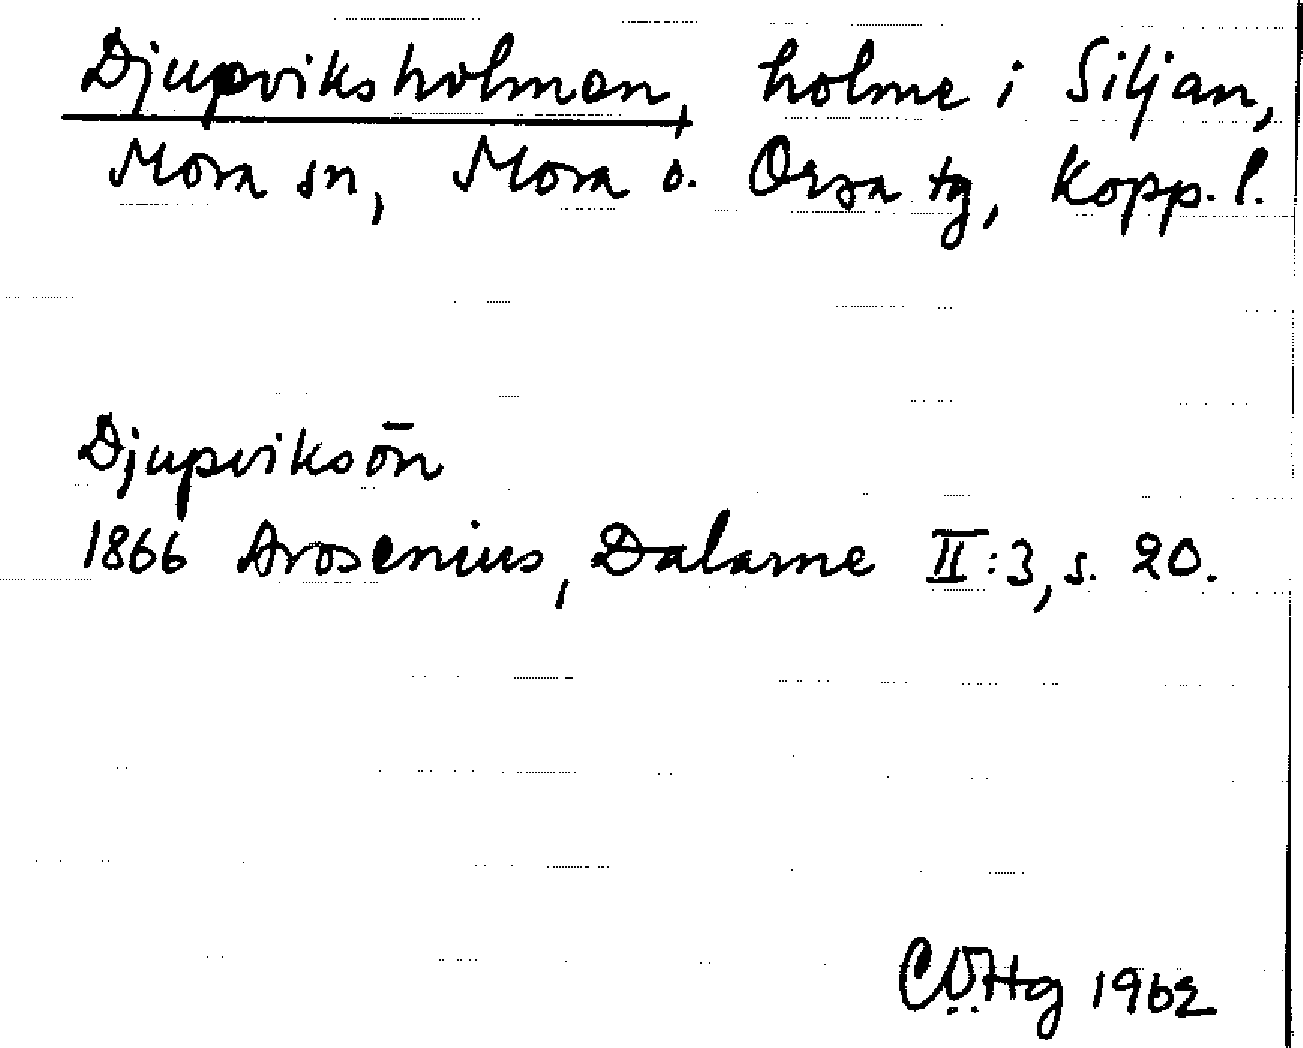 Djupviksholmen, holme i Siljan,
Mora sn, Mora o. Orsa tg, Kopp. l.
Djupviksön
1866 Arosenius, Dalarne II:3, s. 20.
1962